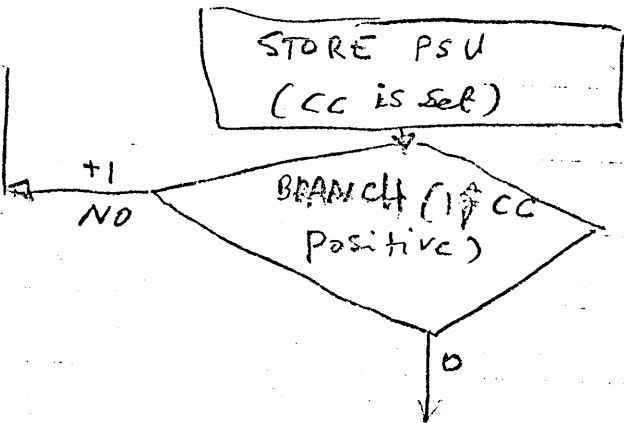 STORE PSU
(CC is Set)
+1
NO
BRANCH (If CC
Positive)
0